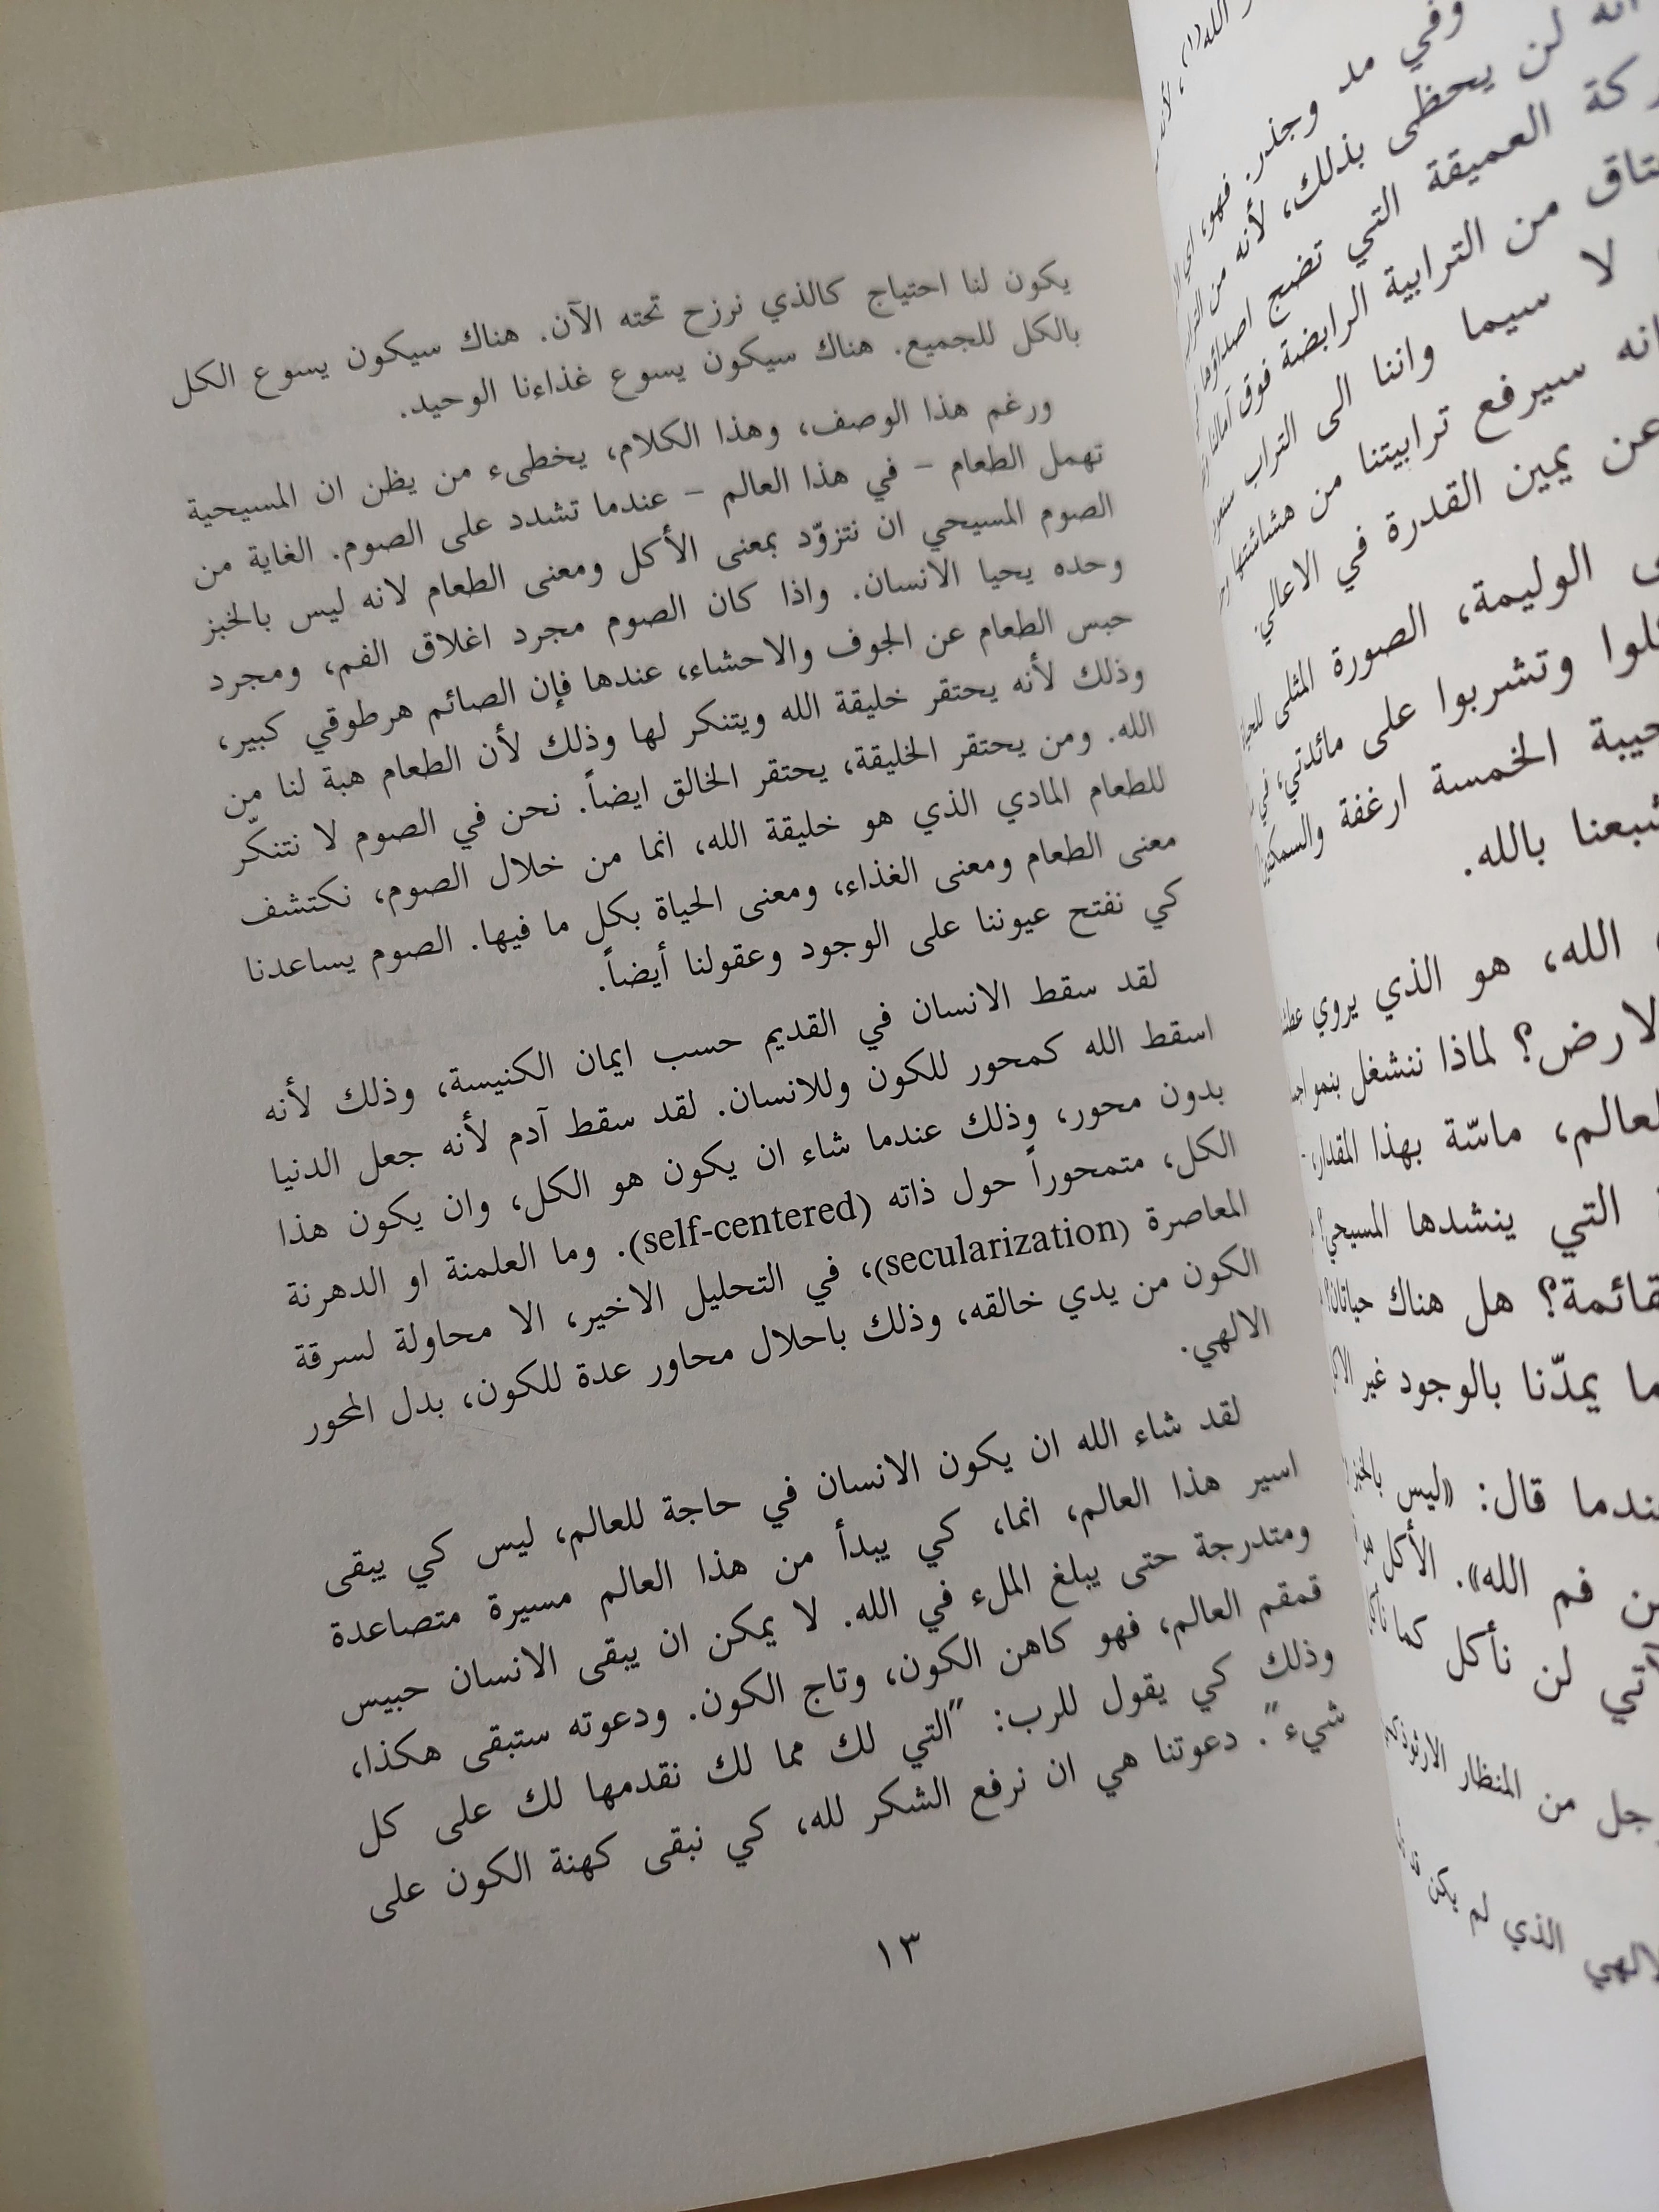 الله(١)، لأنه
وفي مد وجذر. فهو، اي
انه لن يحظى بذلك، لأنه من
العميقة التي تضج اصداؤها
من الترابية الرابضة فوق آمالنا
لا سيما واننا الى التراب سنعود
انه سيرفع ترابيتنا من هشاشتها
عن يمين القدرة في الاعالي.
الوليمة، الصورة المثلى
وتشربوا على مائدتي، في
الخمسة ارغفة والسمكتين
بالله.
الله، هو الذي يروي
لماذا ننشغل بنمو
ماسّة بهذا المقدار،
التي ينشدها المسيحي؟
هل هناك حياتان؟
يمدّنا بالوجود غير
قال: «ليس بالخبز
فم الله». الأكل هو
لن نأكل كما نأكل
من المنظار
الذي لم يكن
يكون لنا احتياج كالذي نرزح تحته الآن. هناك سيكون يسوع الكل
بالكل للجميع. هناك سيكون يسوع غذاءنا الوحيد.
ورغم هذا الوصف، وهذا الكلام، يخطىء من يظن ان المسيحية
تهمل الطعام – في هذا العالم – عندما تشدد على الصوم. الغاية من
الصوم المسيحي ان نتزوّد بمعنى الأكل ومعنى الطعام لانه ليس بالخبز
وحده يحيا الانسان. واذا كان الصوم مجرد اغلاق الفم، ومجرد
حبس الطعام عن الجوف والاحشاء، عندها فإن الصائم هرطوقي كبير،
وذلك لأنه يحتقر خليقة الله ويتنكر لها وذلك لأن الطعام هبة لنا من
الله. ومن يحتقر الخليقة، يحتقر الخالق ايضاً. نحن في الصوم لا نتنكّر
للطعام المادي الذي هو خليقة الله، انما من خلال الصوم، نكتشف
معنى الطعام ومعنى الغذاء، ومعنى الحياة بكل ما فيها. الصوم يساعدنا
كي نفتح عيوننا على الوجود وعقولنا أيضاً.
لقد سقط الانسان في القديم حسب ايمان الكنيسة، وذلك لأنه
اسقط الله كمحور للكون وللانسان. لقد سقط آدم لأنه جعل الدنيا
بدون محور، وذلك عندما شاء ان يكون هو الكل، وان يكون هذا
الكل، متمحوراً حول ذاته (self-centered). وما العلمنة او الدهرنة
المعاصرة (secularization)، في التحليل الاخير، الا محاولة لسرقة
الكون من يدي خالقه، وذلك باحلال محاور عدة للكون، بدل المحور
الالهي.
لقد شاء الله ان يكون الانسان في حاجة للعالم، ليس كي يبقى
اسير هذا العالم، انما، كي يبدأ من هذا العالم مسيرة متصاعدة
ومتدرجة حتى يبلغ الملء في الله. لا يمكن ان يبقى الانسان حبيس
قمقم العالم، فهو كاهن الكون، وتاج الكون. ودعوته ستبقى هكذا،
وذلك كي يقول للرب: "التي لك مما لك نقدمها لك على كل
شيء". دعوتنا هي ان نرفع الشكر لله، كي نبقى كهنة الكون على
١٣